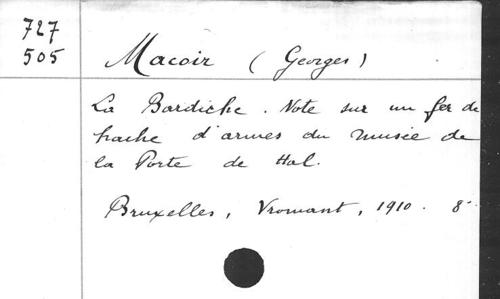 727
505
Macoir (Georges)
La Bardiche. Note sur un fer de
hache d'armes du musée de
la Porte de Hal.
Bruxelles, Vromant, 1910. 8°